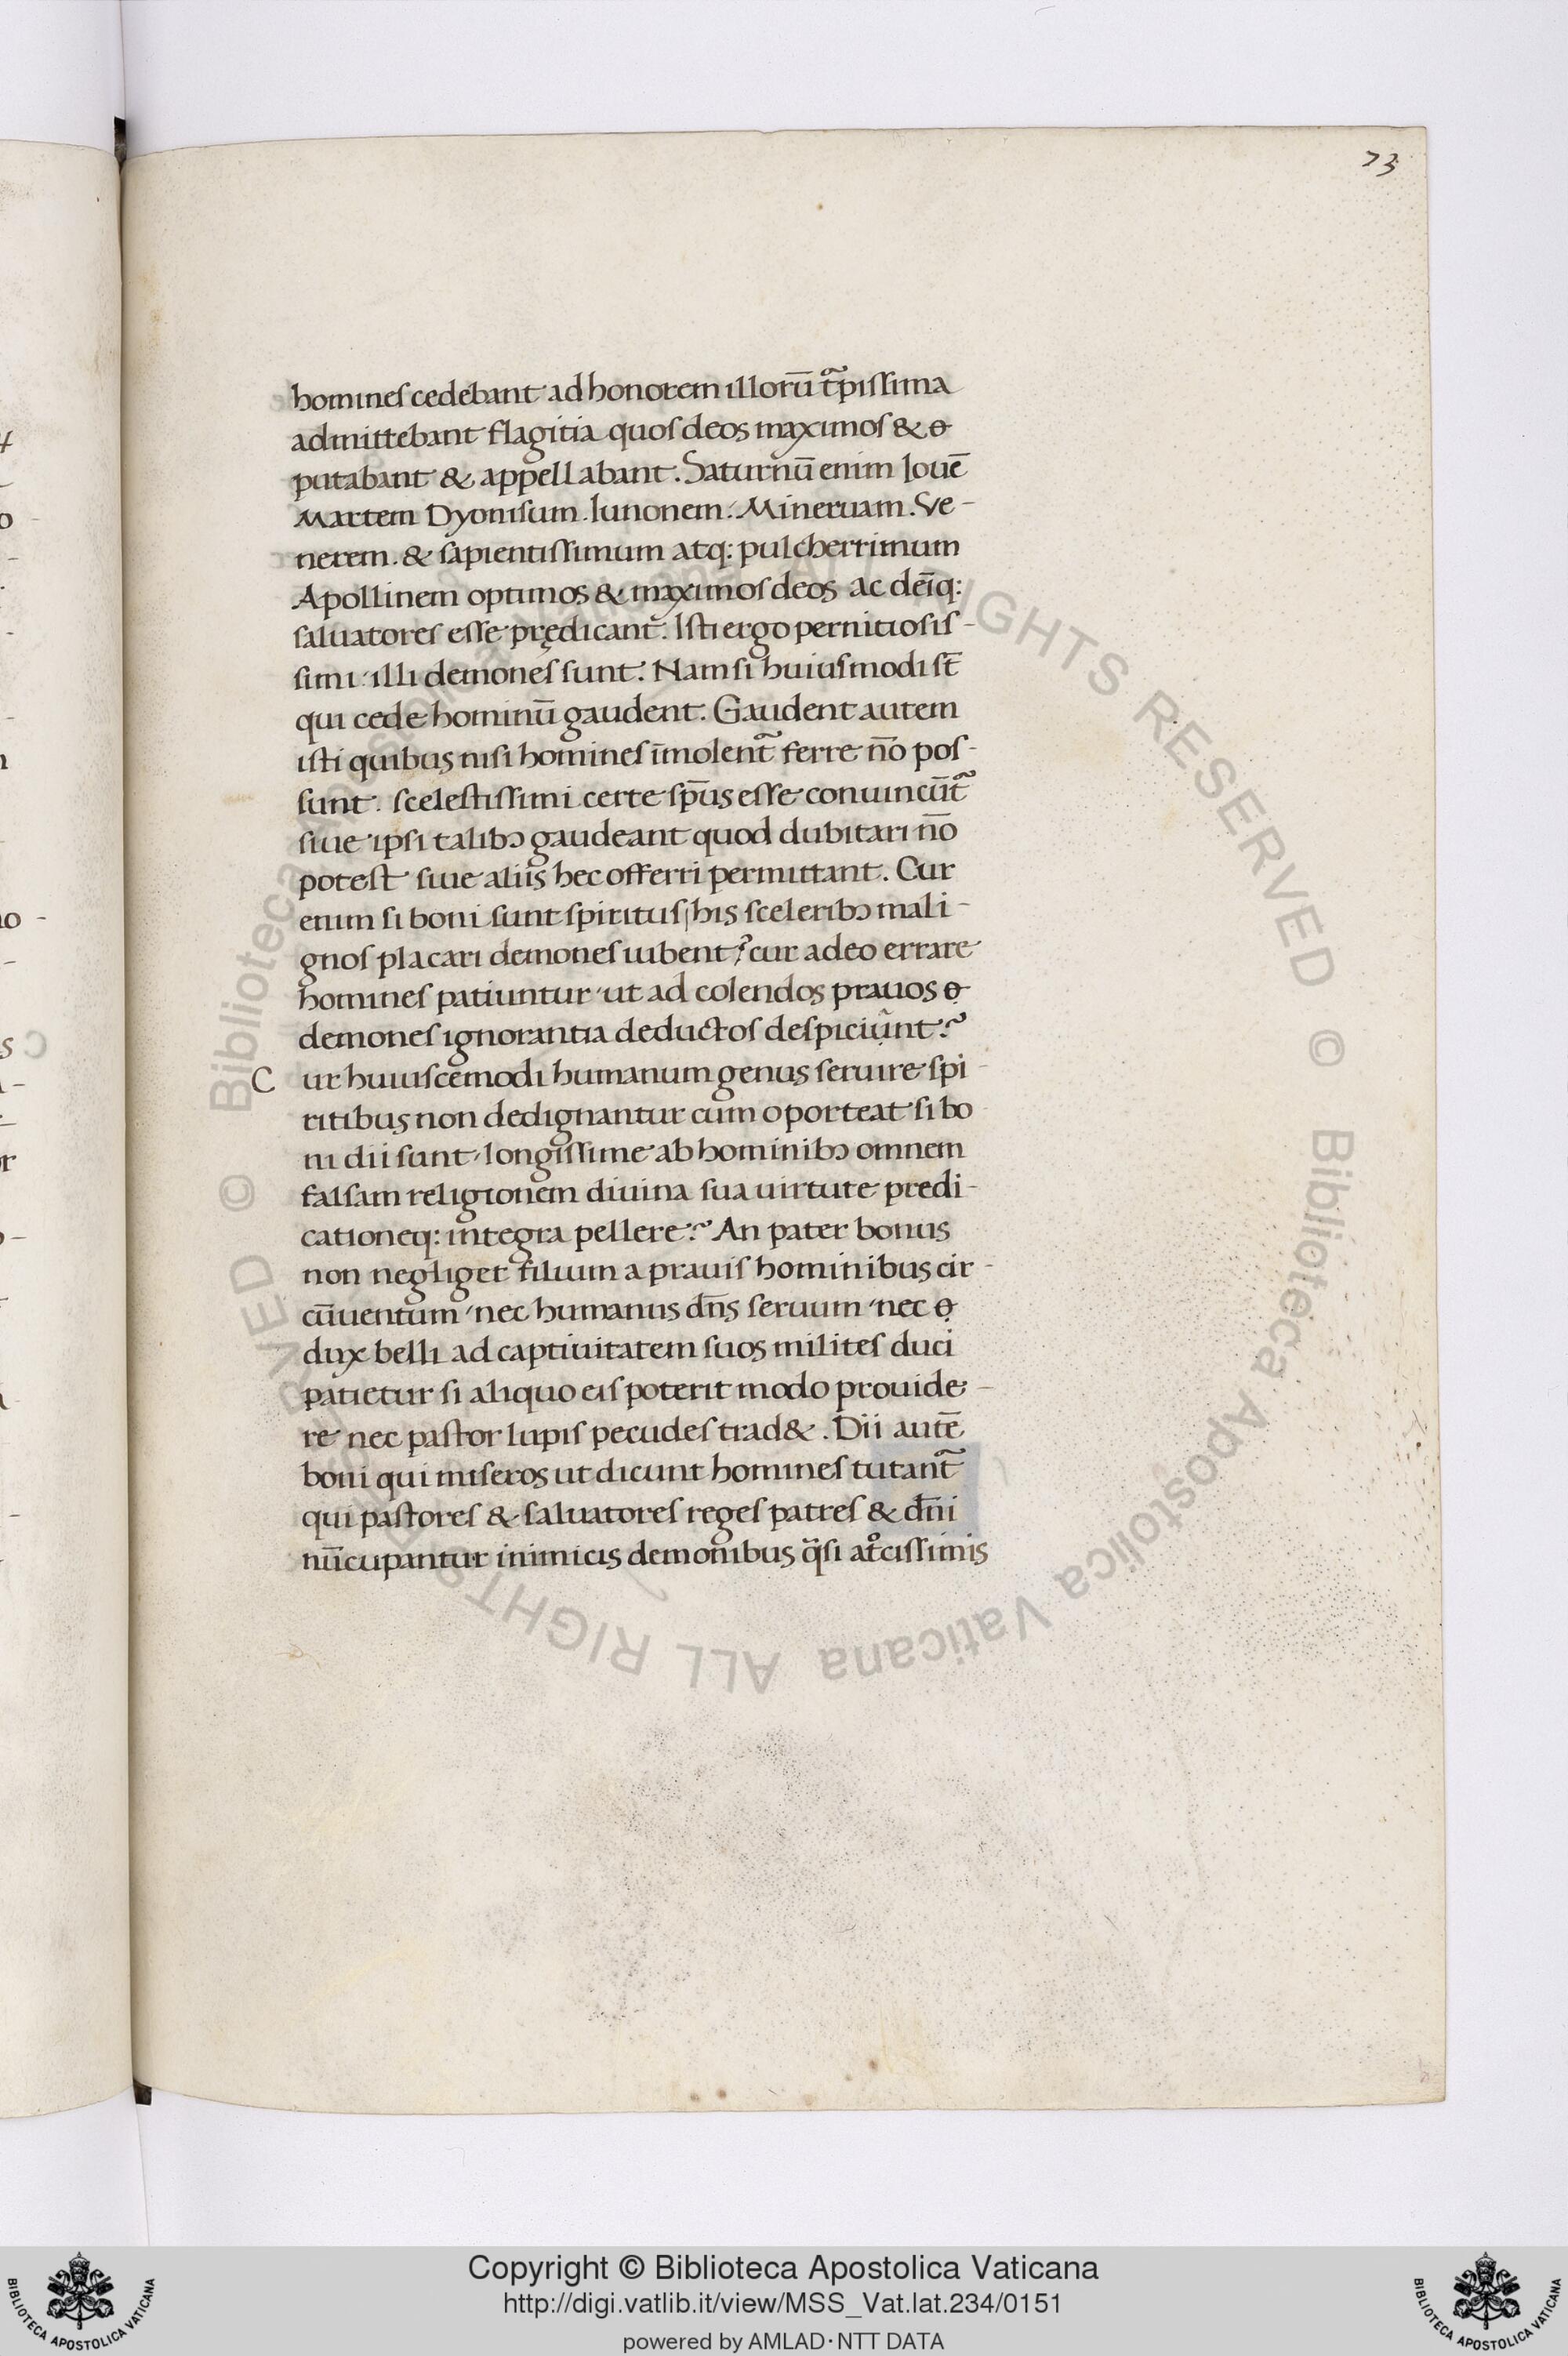 73
homines cedebant ad honorem illorū t̃pissima
admittebant flagitia quos deos maximos &
putabant & appellabant. Saturnū enim Iouē
Martem Dyonisum. Iunonem. Mineruam. Ve-
nerem. & sapientissimum atq: pulcherrimum
Apollinem optimos & maximos deos ac deīq:
saluatores esse prędicant. Isti ergo pernitiosis-
simi illi demones sunt. Nam si huiusmodi st̄
qui cede hominū gaudent. Gaudent autem
isti quibus nisi homines īmolent̃ ferre nō pos-
sunt. scelestissimi certe sp̄us esse conuincūt̃
siue ipsi talibꝫ gaudeant quod dubitari nō
potest siue aliis hec offerri permittant. Cur
enim si boni sunt spiritus his sceleribꝫ mali-
gnos placari demones iubent? cur adeo errare
homines patiuntur ut ad colendos prauos
demones ignorantia deductos despiciunt?
C ur huiuscemodi humanum genus seruire spi-
ritibus non dedignantur cum oporteat si bo
ni dii sunt longissime ab hominibꝫ omnem
falsam religionem diuina sua uirtute predi-
cationeq: integra pellere? An pater bonus
non negliget filium a prauis hominibus cir-
cūuentum nec humanus dn̄s seruum nec
dux belli ad captiuitatem suos milites duci
patietur si aliquo eis poterit modo prouide-
re nec pastor lupis pecudes trad&. Dii autē
boni qui miseros ut dicunt homines tutant̃
qui pastores & saluatores reges patres & dn̄i
nūcupantur inimicis demonibus q̈si atͦcissimis
Copyright © Biblioteca Apostolica Vaticana
http://digi.vatlib.it/view/MSS_Vat.lat.234/0151
powered by AMLAD·NTT DATA
BIBLIOTECA APOSTOLICA VATICANA
BIBLIOTECA APOSTOLICA VATICANA
© Biblioteca Apostolica Vaticana ALL RIGHTS RESERVED © Biblioteca Apostolica Vaticana ALL RIGHTS RESERVED